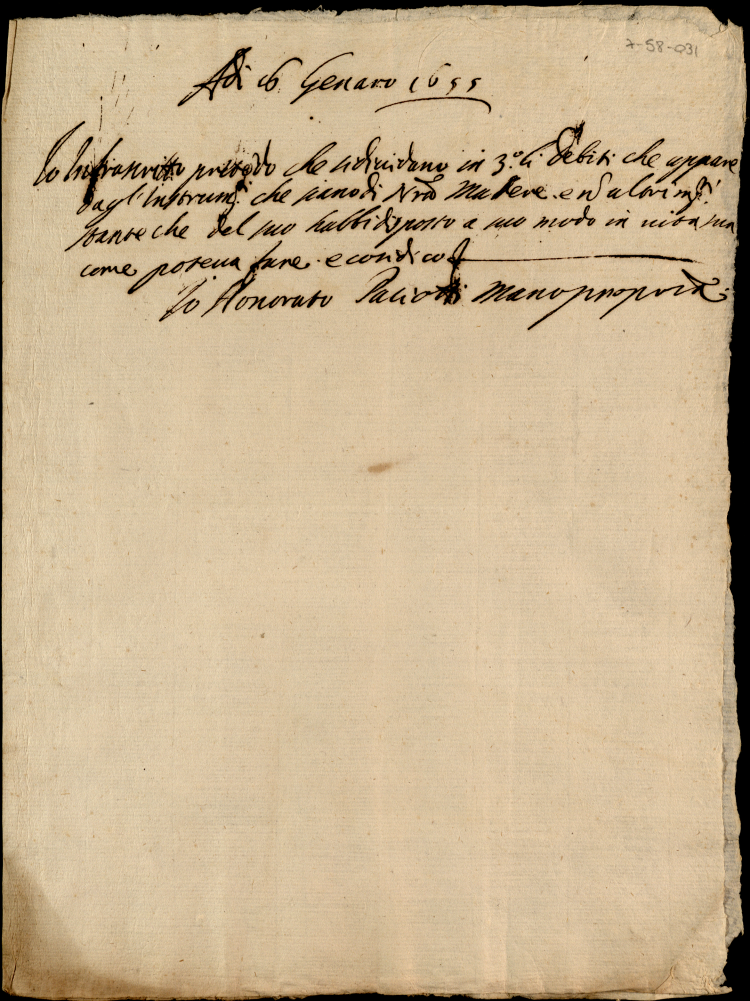 7-58-031
Adi 16 Genaro 1655
Io Infrascritto pretendo che si dividano in 3.o li debiti che appare
dagl'Instrumti che siano di Nra Madre e n
stante che del suo habbi disposto a suo modo in vita sua
come poteva fare e cosi dico
Io Honorato Paciotti mano propria